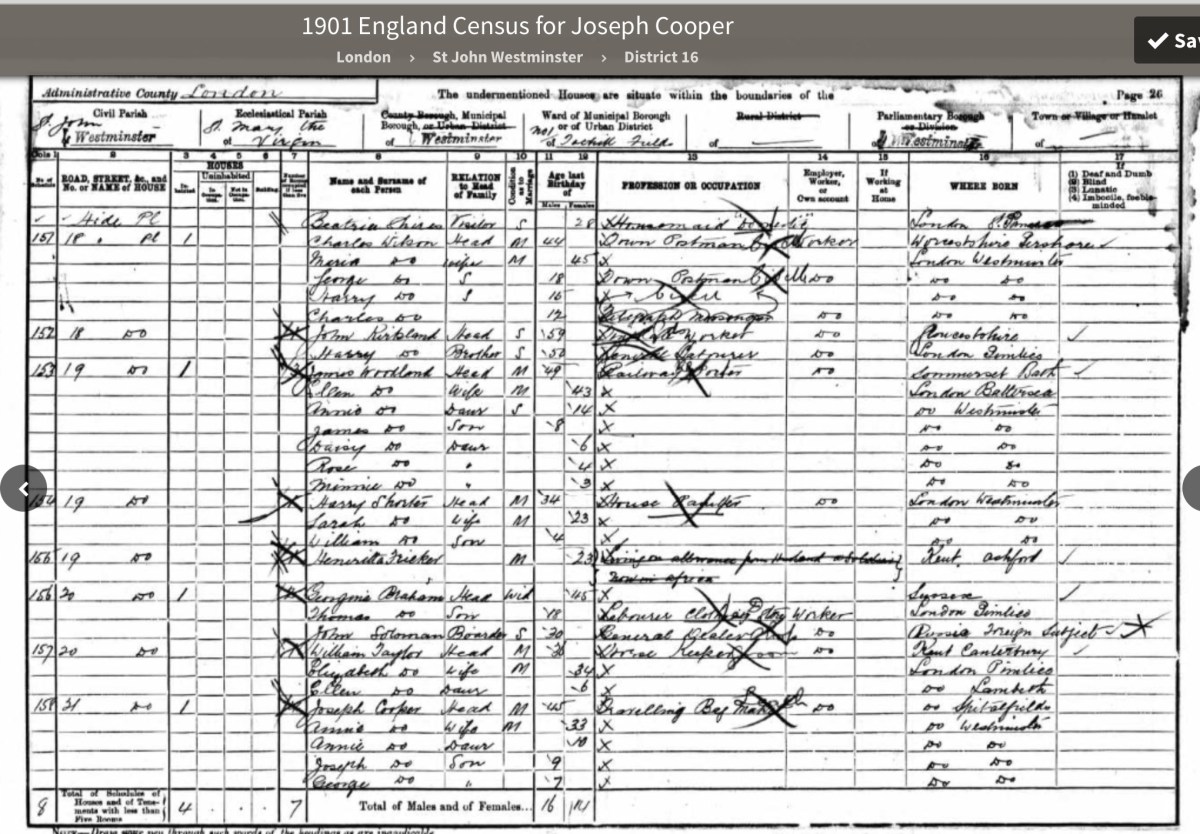 1901 England Census for Joseph Cooper
London › St John Westminster › District 16
✓ Sav
Administrative County London The undermentioned Houses are situate within the boundaries of the Page 26
Civil Parish Ecclesiastical Parish County Borough, Municipal Borough, or Urban District Ward of Municipal Borough or of Urban District Rural District Parliamentary Borough or Division Town or Village or Hamlet
St John Westminster of St Mary the Virgin of Westminster of of Westminster of
Cols 1 2 3 4 5 6 7 8 9 10 11 12 13 14 15 16 17
HOUSES
ROAD, STREET, &c., and No. or NAME of HOUSE Inhabited Uninhabited Building Name and Surname of each Person RELATION to Head of Family Condition as to Marriage Age last Birthday of Males Females PROFESSION OR OCCUPATION Employer, Worker, or Own account If Working at Home WHERE BORN If (1) Deaf and Dumb (2) Blind (3) Lunatic (4) Imbecile, feeble-minded
Pl Beatrice Visitor S 28 Housemaid London
151 18 " Pl 1 Charles Wilson Head M 44 Town Postman Worker Worcestshire Pershore
Maria Do Wife M 45 X London Westminster
George Do S 18 Town Postman Do Do Do
Harry Do S 16 Do Do
Charles Do 12 Telegraph Messenger Do Do Do
152 18 Do John Kirkland Head S 59 Worker Do Gloucestshire
Harry Do Brother S 50 Do London Pimlico
153 19 Do 1 James Woodland Head M 49 Railway Porter Do Sommerset Bath
Ellen Do Wife M 43 X London Battersea
Annie Do Daur S 14 X Do Westminster
James Do Son 8 X Do Do
Daisy Do Daur 6 X Do Do
Rose Do " 4 X Do Do
Minnie Do " 3 X Do Do
154 19 Do Harry Shorter Head M 34 House Painter Do London Westminster
Sarah Do Wife M 23 X Do Do
William Do Son 4 X Do Do
155 19 Do Henrietta Fricker M 23 Living on allowance from Husband a Soldier Kent Ashford
Now in africa
156 20 Do 1 Georgina Braham Head Wid 45 X Sussex
Thomas Do Son 18 Labourer Worker London Pimlico
John Soloman Boarder S 30 General Dealer Do Russia Foreign Subject
157 20 Do William Taylor Head M Horse Keeper Do Kent Canterbury
Elizabeth Do Wife M 34 X London Pimlico
Ellen Do Daur 6 X Do Lambeth
158 21 Do 1 Joseph Cooper Head M 45 Travelling Bag Maker Do Do Spitalfields
Annie Do Wife M 33 X Do Westminster
Annie Do Daur 10 X Do Do
Joseph Do Son 9 X Do Do
George Do " 7 X Do Do
8 Total of Schedules of Houses and of Tenements with less than Five Rooms 4 7 Total of Males and of Females... 16 14